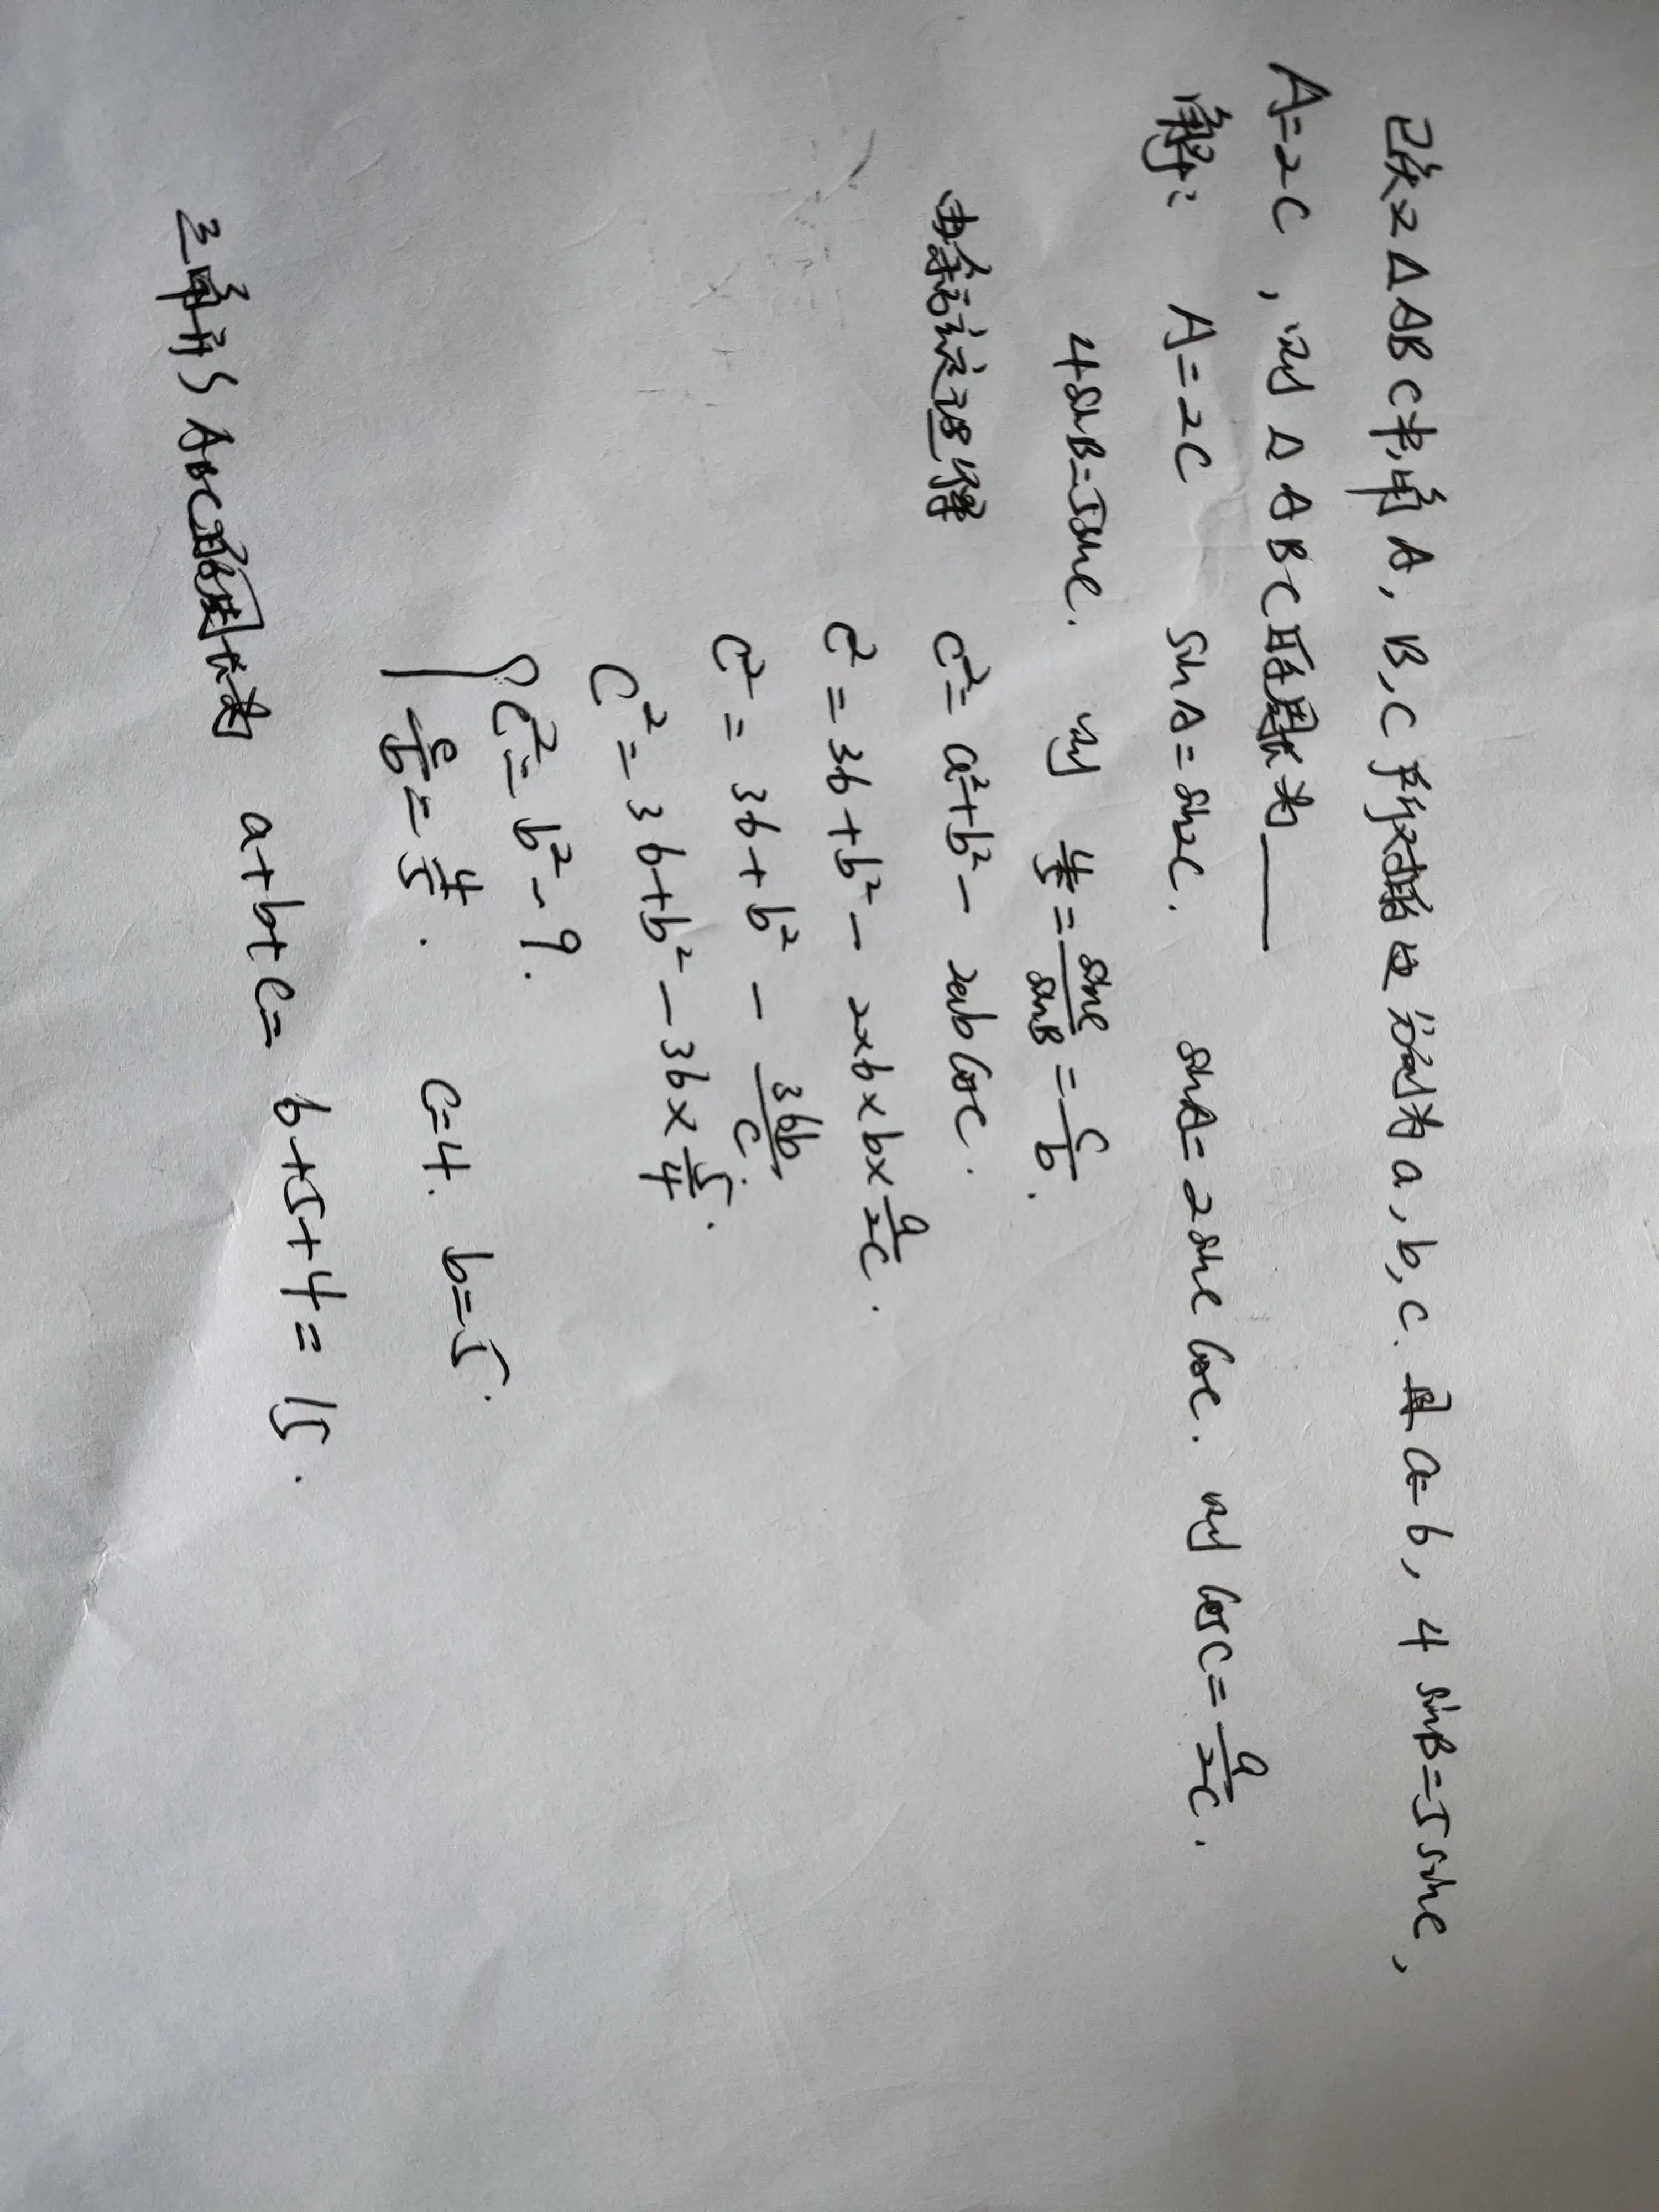 已知△ABC中,角A,B,C所对的边分别为a,b,c.且a=6,4sinB=5sinC,
A=2C,则△ABC的周长为____
解: A=2C sinA=sin2C. sinA=2sinCcosC. 则cosC=a/2c.
4sinB=5sinC. 则 4/5=sinC/sinB=c/b.
由余弦定理得 c²=a²+b²-2abcosC.
c²=36+b²-2×6×b×a/2c.
c²=36+b²-36b/c.
c²=36+b²-36×5/4.
{c²=b²-9.
c/b=4/5. c=4. b=5.
三角形ABC的周长为 a+b+c=6+5+4=15.